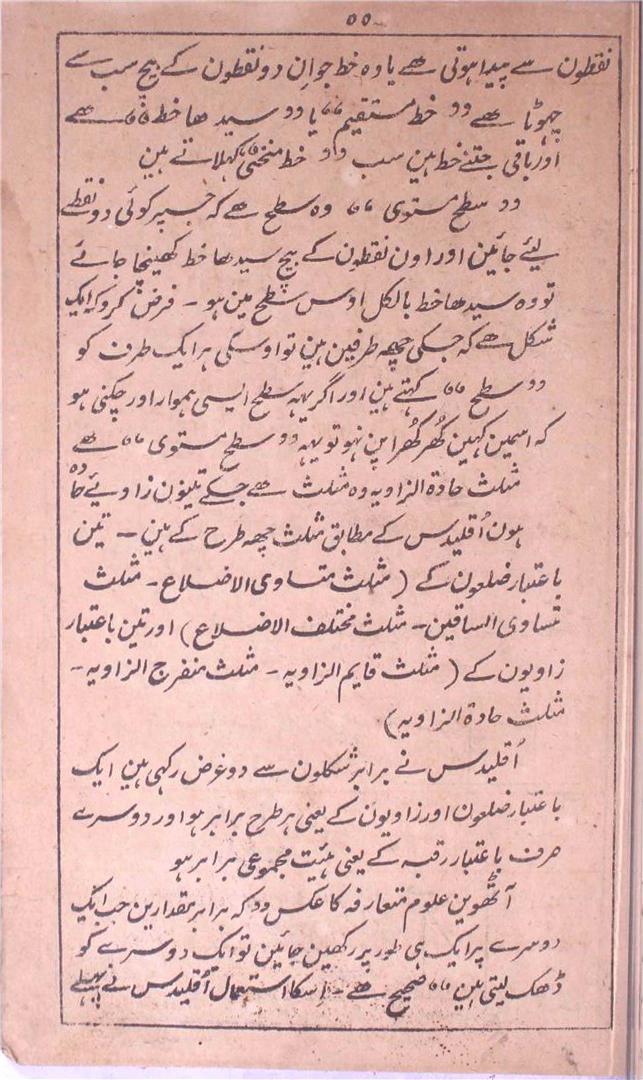 ۵۵
نقطون سے پیدا ہوتی ھے یا وہ خط جو اِن دو نقطون کے بیچ سب سے
چھوٹا ھے ’’ خط مستقیم ‘‘ یا ’’ سیدھا خط ‘‘ ھے
اور باقی جتنے خط ہین سب ’’ خط منحنی ‘‘ کہلاتے ہین
’’ سطح مستوی ‘‘ وہ سطح ھے کہ جسپر کوئی دو نقطے
لیئے جائین اور اون نقطون کے بیچ سیدھا خط کھینچا جائے
تو وہ سیدھا خط بالکل اوس سطح مین ہو - فرض کرو کہ ایک
شکل ھے کہ جسکی چھہ طرفین ہین تو اوسکی ہر ایک طرف کو
’’ سطح ‘‘ کہتے ہین اور اگر یہہ سطح ایسی ہموار اور چکنی ہو
کہ اسمین کہین کُھر کُھرا پن نہو تو یہہ ’’ سطح مستوی ‘‘ ھے
مثلث حادۃ الزاویہ وہ مثلث ھے جسکے تینون زاویئے حادہ
ہون اُقلیدس کے مطابق مثلث چھہ طرح کے ہین - تین
باعتبار ضلعون کے ( مثلث متساوی الاضلاع - مثلث
متساوی الساقین - مثلث مختلف الاضلاع ) اور تین باعتبار
زاویون کے ( مثلث قایم الزاویہ - مثلث منفرج الزاویہ -
مثلث حادۃ الزاویہ )
اُقلیدس نے برابر شکلون سے دو غرض رکھی ہین ایک
باعتبار ضلعون اور زاویون کے یعنی ہر طرح برابر ہو اور دوسرے
صرف باعتبار رقبہ کے یعنی ہئیت مجموعی برابر ہو
آٹھوین علوم متعارفہ کا عکس ’’ کہ برابر مقدارین جب ایک
دوسرے پر ایک ہی طور پر رکھین جائین تو ایک دوسرے کو
ڈھک لیتی ہین ‘‘ صحیح ھے - اِسکا استعمال اُقلیدس نے پہلے